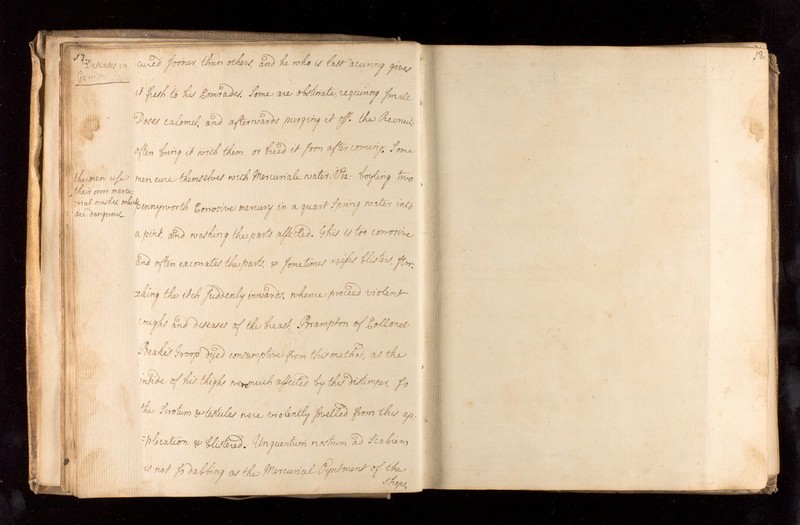 57
Diseases in
cured sooner than others and he who is last acuring gives
it fresh to his Comrades. Some are obstinate, requiring small
Doses calomel, and afterwards purging it off. the Recruits
often bring it with them, or breed it soon after coming. Some
the men use
their own mercu:
:rial washes which
are dangerous
men cure themselves with Mercuriale water. Viz: boyling two
pennyworth Corrosive mercury in a quart Spring water into
a pint, and washing the parts affected. This is too corrosive
and often excoriates the parts, & sometimes raises blisters, stri:
:king the itch suddenly inwards, whence proceed violent
coughs and diseases of the breast, Brampton of Collonel
Beake's troop dyed consumptive from this method, as the
inside of his thighs were much affected by this distemper, so
the Scrotum & testicles were violently swelled from this ap:
:plication & blistered. Unguentum nostrum ad Scabiem
is not so dabbing as the Mercurial Oyntment of the
shops,